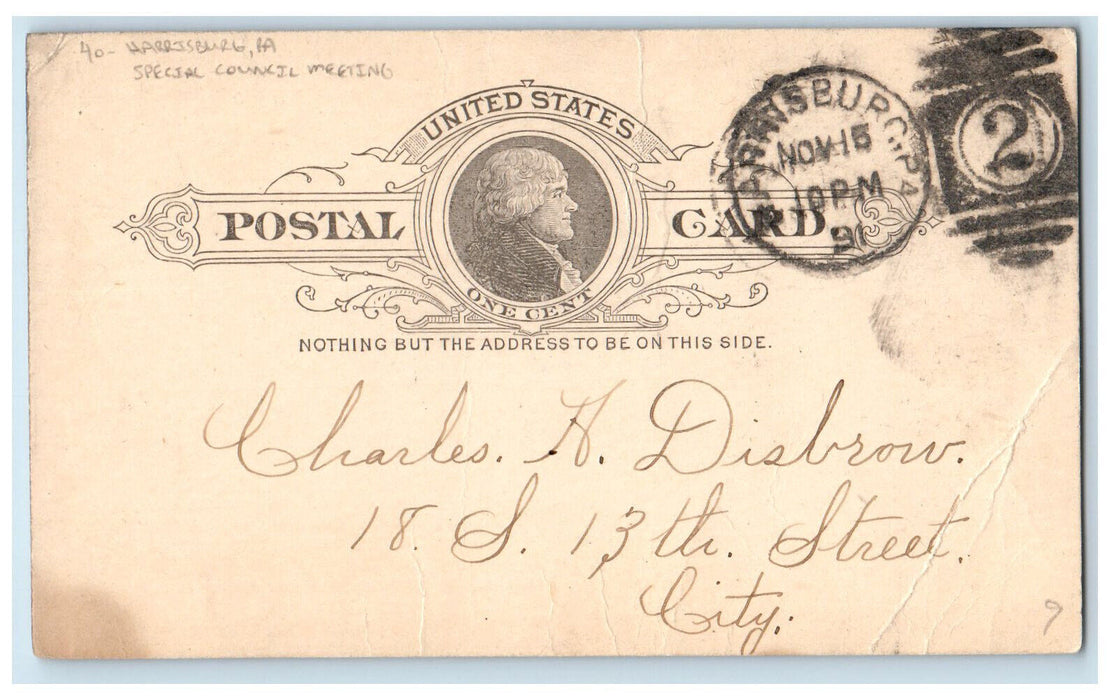 40- HARRISBURG, PA
SPECIAL COUNCIL MEETING
UNITED STATES
POSTAL CARD
ONE CENT
NOTHING BUT THE ADDRESS TO BE ON THIS SIDE.
HARRISBURG, PA
NOV 15
10 PM
90
2
Charles. H. Disbrow.
18. S. 13th. Street.
City.
9